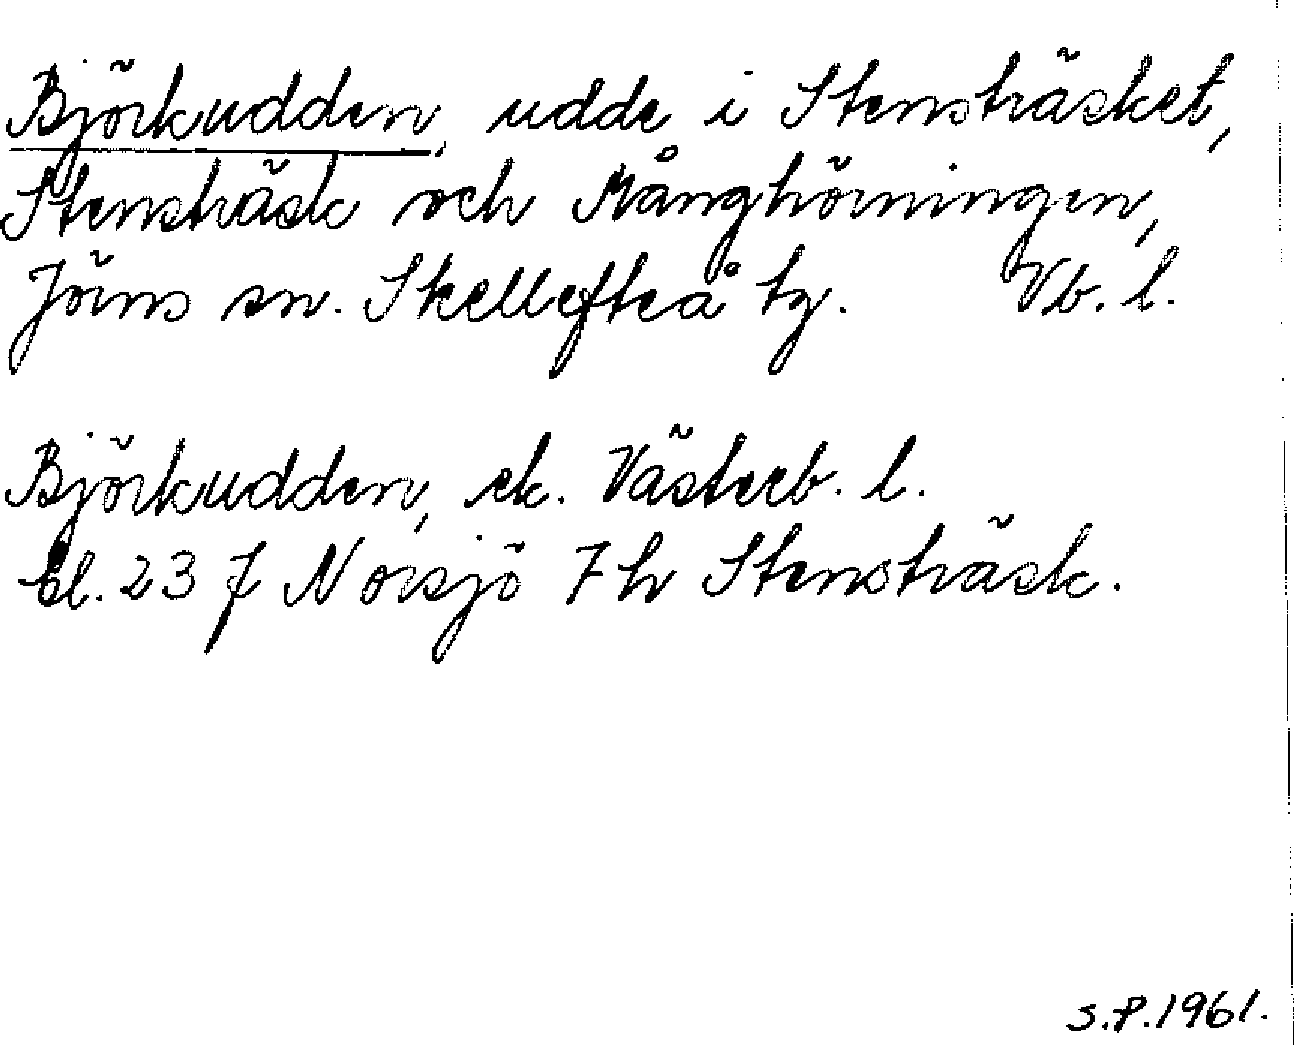 Björkudden, udde i Stensträsket,
Stensträsk och Månghörningen,
Jörns sn. Skellefteå tg. Vb. l.
Björkudden, ek. Västerb. l.
bl. 23 J Norsjö 7h Stensträsk.
S.P. 1961.